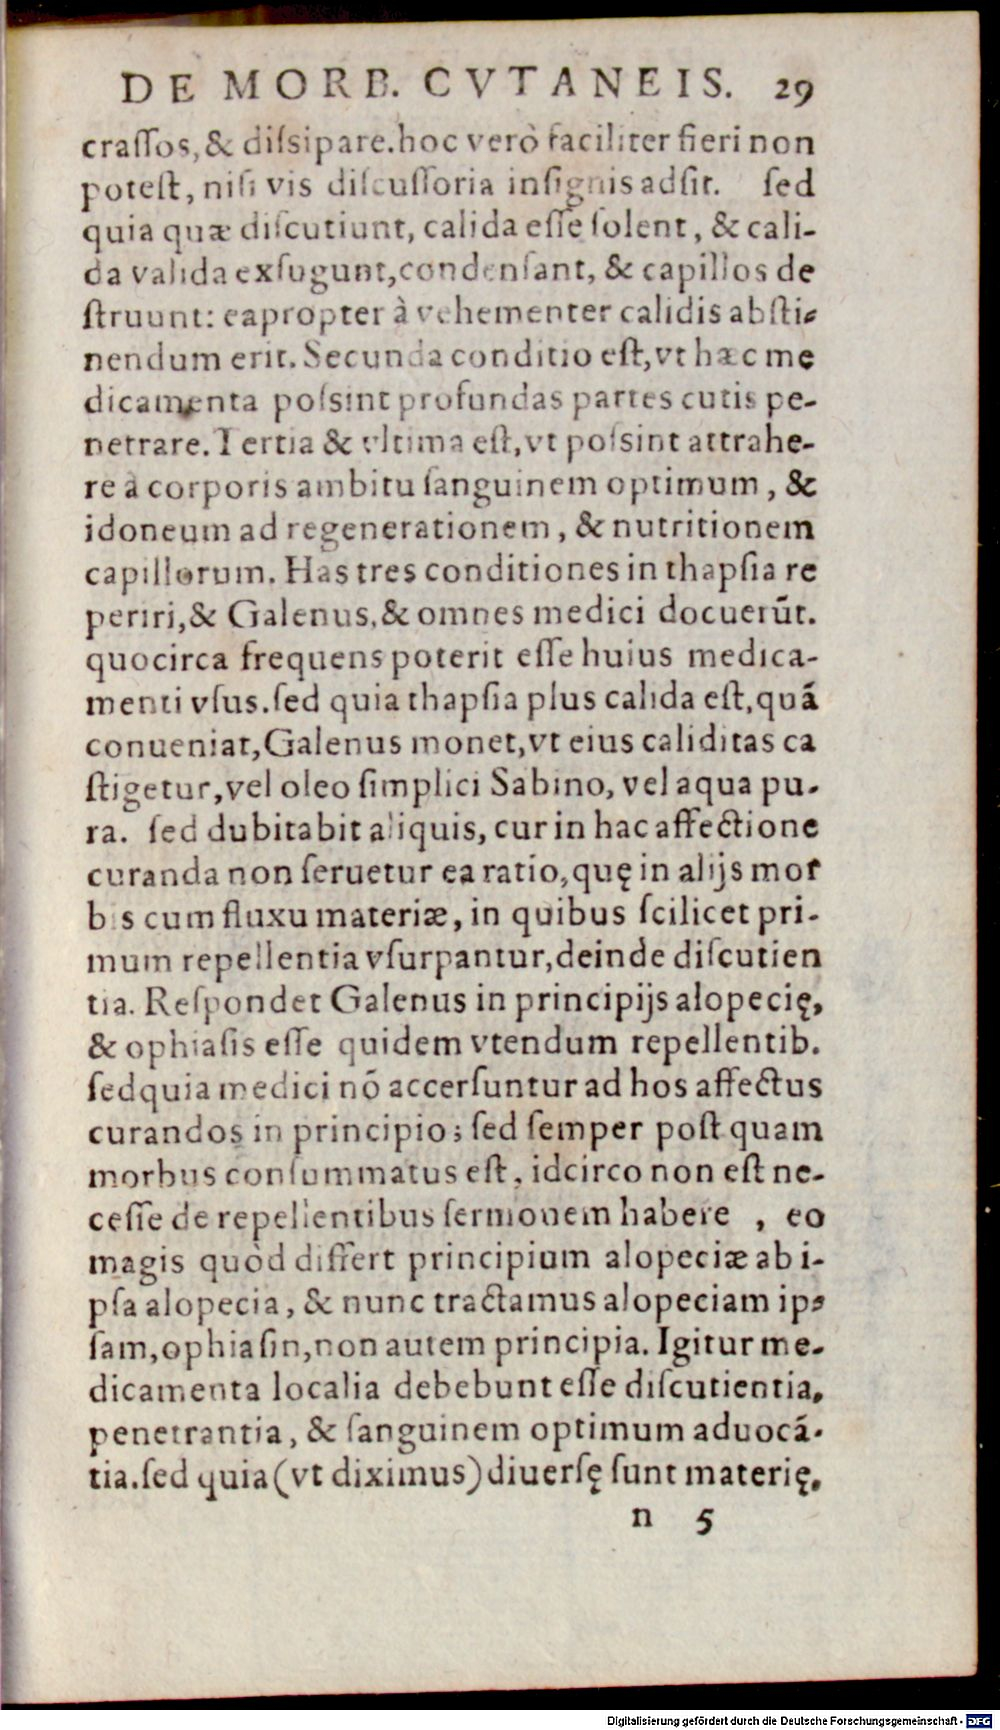 DE MORB. CVTANEIS. 29
craſſos, & diſsipare. hoc verò faciliter fieri non
poteſt, niſi vis diſcuſſoria inſignis adſit. ſed
quia quæ diſcutiunt, calida eſſe ſolent, & cali-
da valida exſugunt, condenſant, & capillos de
ſtruunt: eapropter à vehementer calidis abſti-
nendum erit. Secunda conditio eſt, vt hæc me
dicamenta poſsint profundas partes cutis pe-
netrare. Tertia & vltima eſt, vt poſsint attrahe-
re à corporis ambitu ſanguinem optimum, &
idoneum ad regenerationem, & nutritionem
capillorum. Has tres conditiones in thapſia re
periri, & Galenus, & omnes medici docuerūt.
quocirca frequens poterit eſſe huius medica-
menti vſus. ſed quia thapſia plus calida eſt, quã
conueniat, Galenus monet, vt eius caliditas ca
ſtigetur, vel oleo ſimplici Sabino, vel aqua pu-
ra. ſed dubitabit aliquis, cur in hac affectione
curanda non ſeruetur ea ratio, quę in alijs mor
bis cum fluxu materiæ, in quibus ſcilicet pri-
mum repellentia vſurpantur, deinde diſcutien
tia. Reſpondet Galenus in principijs alopecię,
& ophiaſis eſſe quidem vtendum repellentib.
ſed quia medici nõ accerſuntur ad hos affectus
curandos in principio; ſed ſemper poſt quam
morbus conſummatus eſt, idcirco non eſt ne-
ceſſe de repellentibus ſermonem habere , eo
magis quòd differt principium alopeciæ ab i-
pſa alopecia, & nunc tractamus alopeciam ip-
ſam, ophiaſin, non autem principia. Igitur me-
dicamenta localia debebunt eſſe diſcutientia,
penetrantia, & ſanguinem optimum aduocã-
tia. ſed quia (vt diximus) diuerſę ſunt materię,
n 5
Digitalisierung gefördert durch die Deutsche Forschungsgemeinschaft - DFG